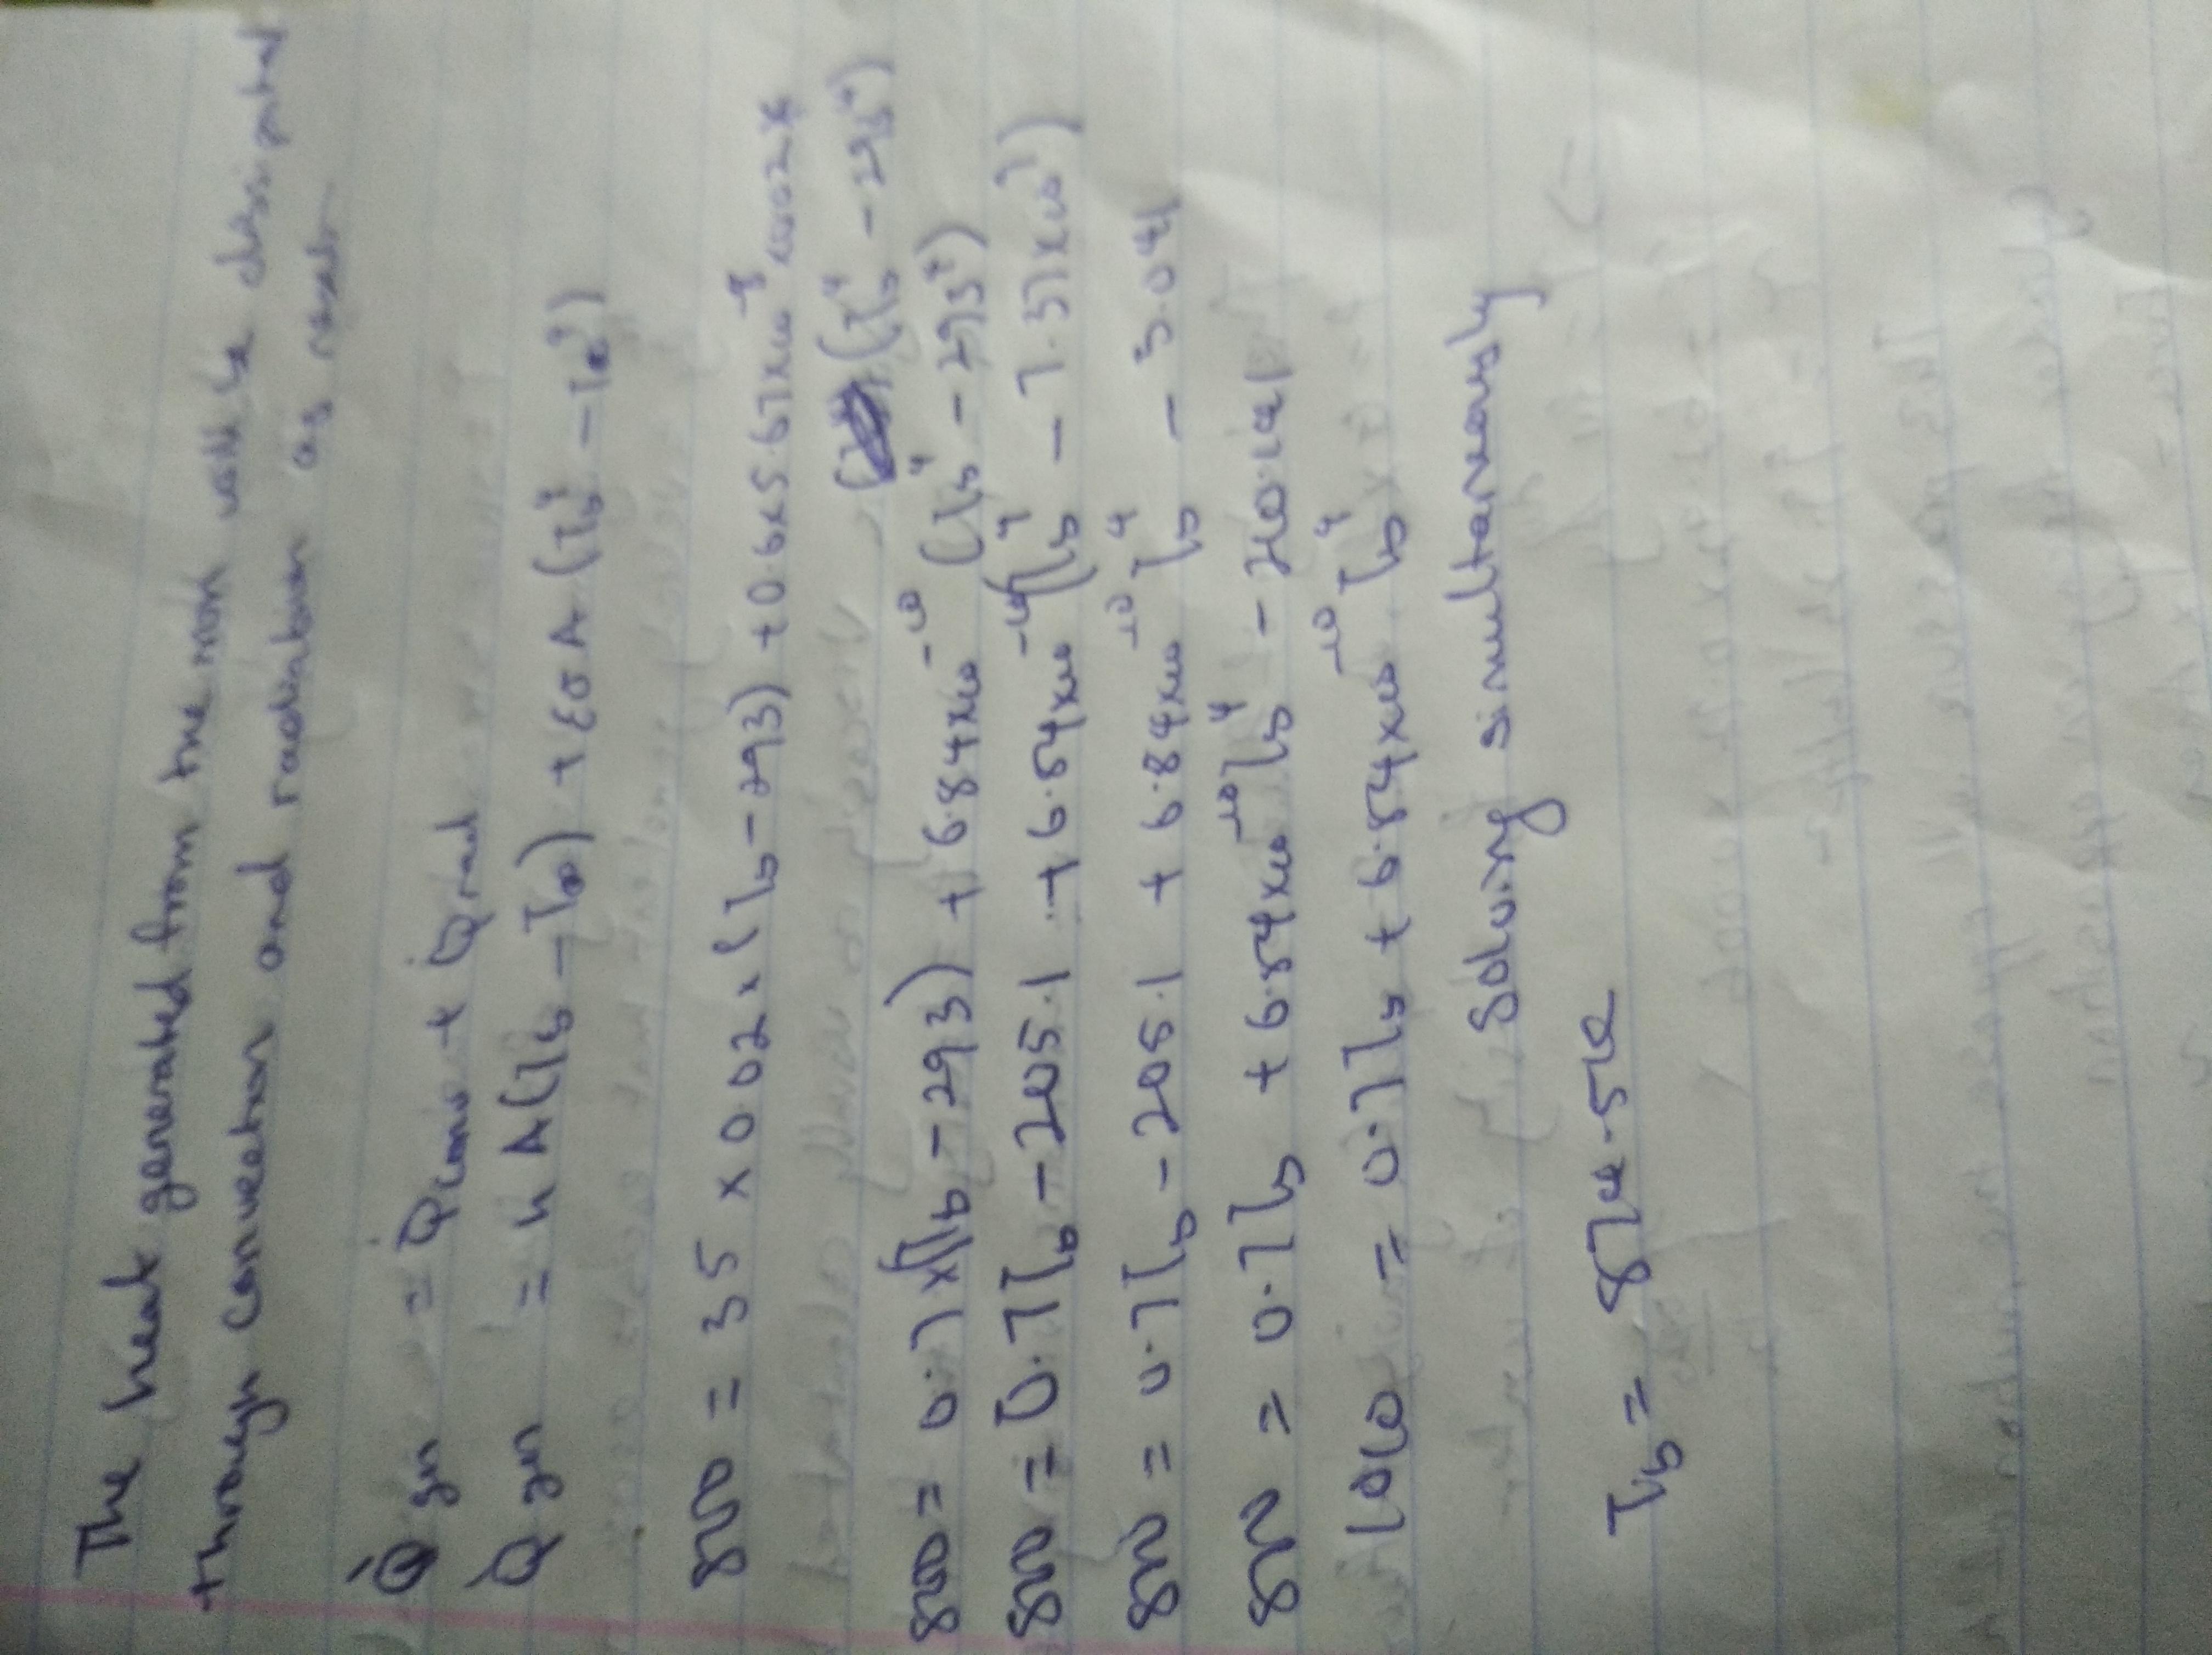 The heat generated from the iron will be dissipated
through convection and radiation as result
Q̇gen = Q̇conv + Q̇rad
Q̇gen = hA(Tb - T∞) + εσA(Tb⁴ - T∞⁴)
800 = 35 × 0.02 × (Tb - 293) + 0.6×5.67×10⁻⁸×0.02×
(Tb⁴ - 293⁴)
800 = 0.7×(Tb - 293) + 6.84×10⁻¹⁰ (Tb⁴ - 293⁴)
800 = 0.7Tb - 205.1 + 6.84×10⁻¹⁰(Tb⁴ - 7.37×10⁹)
800 = 0.7Tb - 205.1 + 6.84×10⁻¹⁰ Tb⁴ - 5.041
800 = 0.7Tb + 6.84×10⁻¹⁰Tb⁴ - 210.141
1010 = 0.7Tb + 6.84×10⁻¹⁰ Tb⁴
Solving simultaneously
Tb = 874.5K